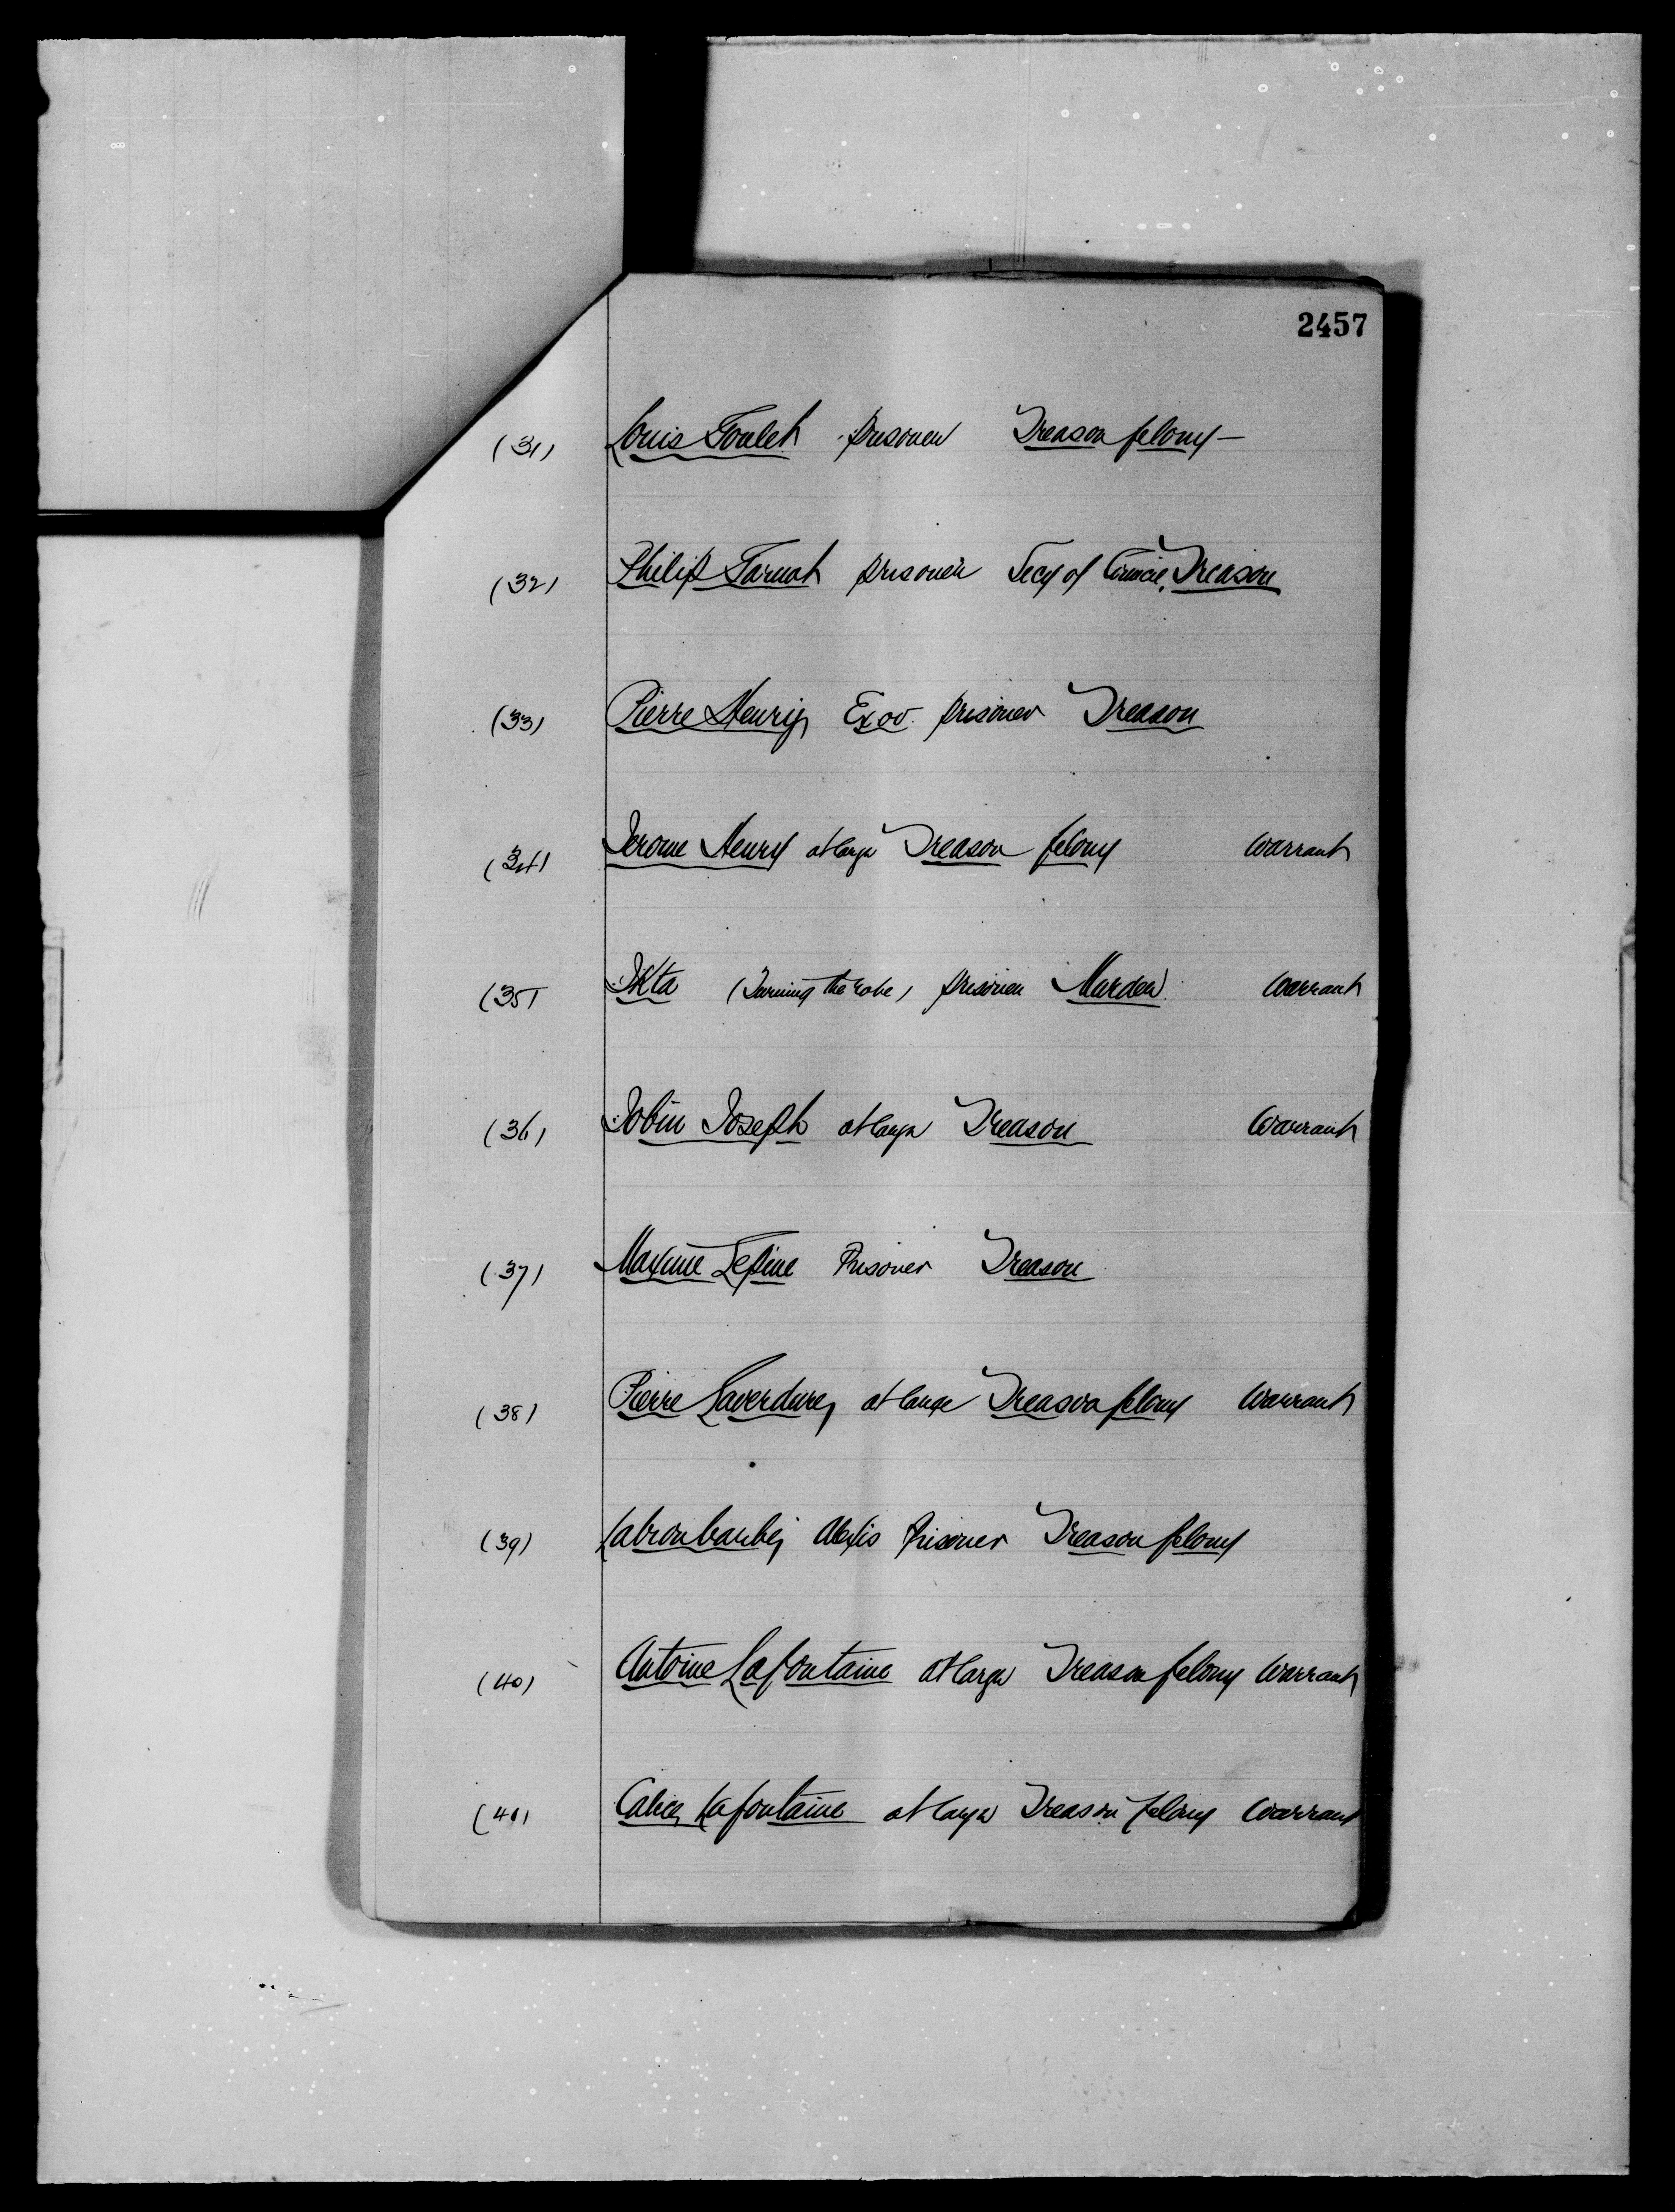 2457
(31) Louis Goulet prisoner Treason felony —
(32) Philip Garnot prisoner Secy of Council, Treason
(33) Pierre Henry, Exov. prisoner Treason
(34) Jerome Henry at large Treason felony Warrant
(35) Ikta (Turning the robe) prisoner Murder. Warrant
(36) Jobin Joseph at large Treason Warrant
(37) Maxime Lepine Prisoner Treason
(38) Pierre Laverdure, at large Treason felony Warrant
(39) Alexis Prisoner Treason felony
(40) Antoine Lafontaine at large Treason felony Warrant
(41) Lafontaine at large Treason felony Warrant